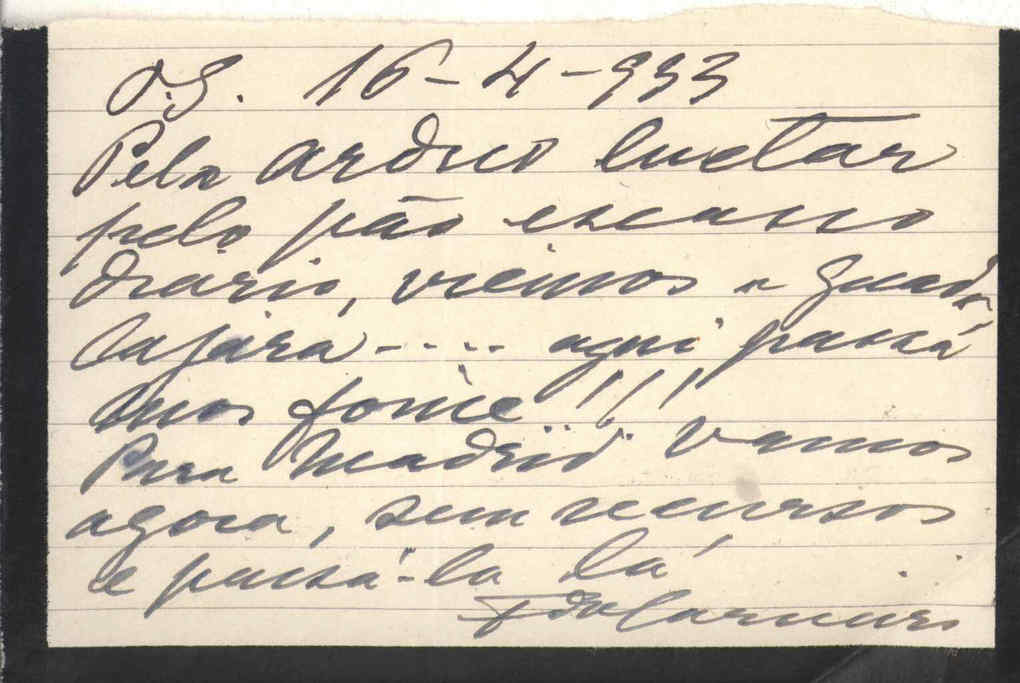 O.S. 16-4-933
Pela arduo luctar
pelo pão escasso
diario, viemos a Guada
lajara - . . . . aqui passá
mos fome!!!
Para Madrid vamos
agora, sem recursos
e passá-la lá